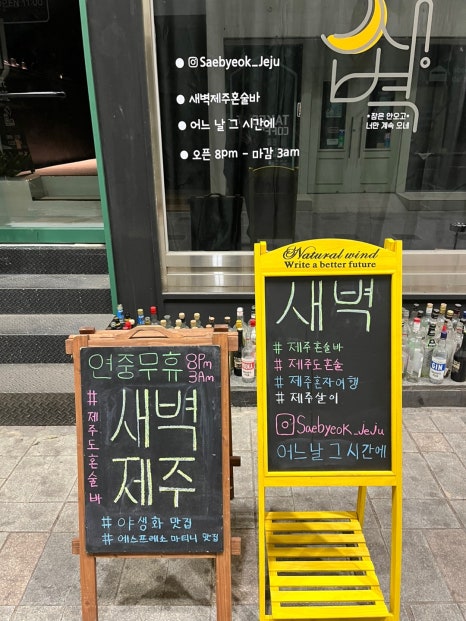 @Saebyeok_Jeju
새벽제주혼술바
어느 날 그 시간에
오픈 8pm - 마감 3am
새벽
•잠은 안오고•
너만 계속 오네
Natural wind
Write a better future
새벽
# 제주혼술바
# 제주도혼술
# 제주혼자여행
# 제주살이
Saebyeok_Jeju
어느날 그 시간에
연중무휴 8pm
3am
# 제주도혼술바
새벽
제주
# 야생화 맛집
# 에스프레소 마티니 맛집
GIN